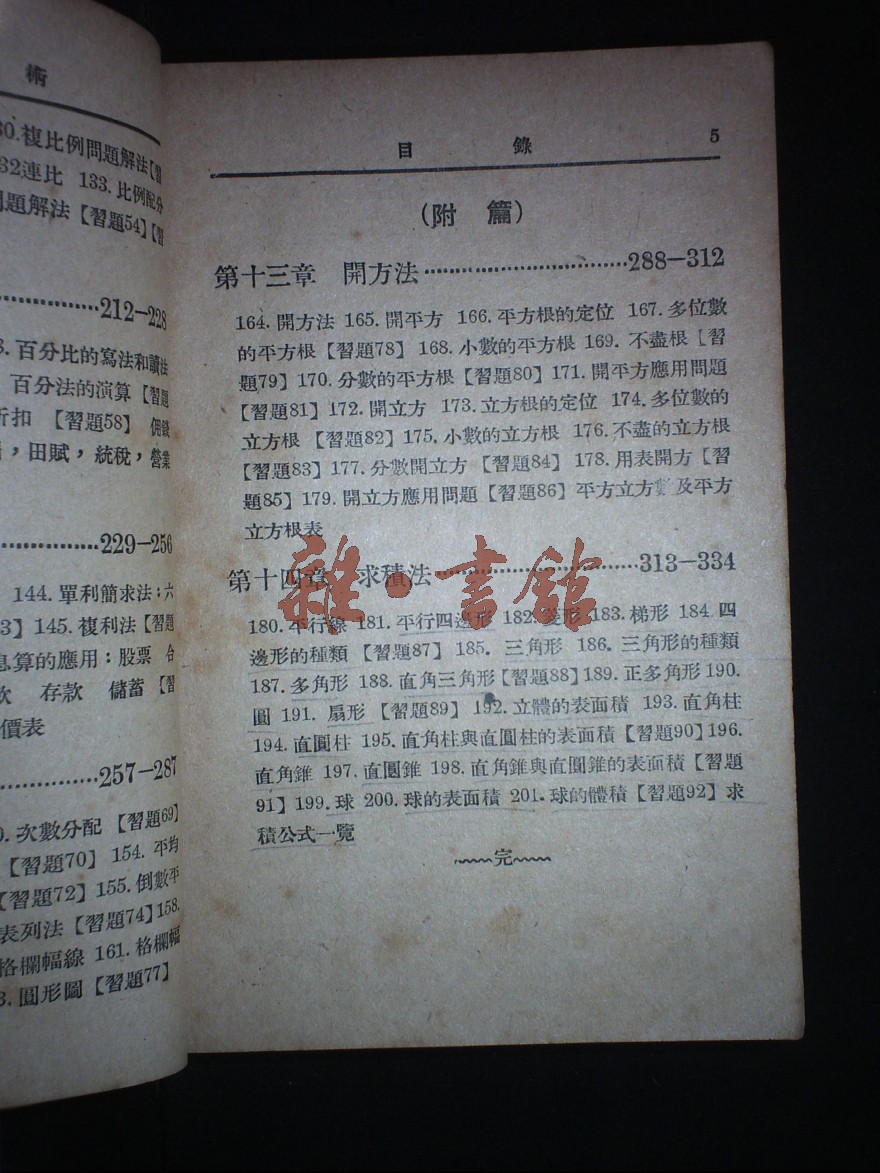 術
30.複比例問題解法【習
32連比 133.比例配分
問題解法【習題54】【習
212—228
3.百分比的寫法和讀法
百分法的演算【習題
折扣 【習題58】 佣錢
，田賦，統稅，營業
229—256
144.單利簡求法：六
3】145.複利法【習題
息算的應用：股票 合
款 存款 儲蓄【習
價表
257—287
0.次數分配【習題69】
【習題70】 154.平均
【習題72】155.倒數平
表列法【習題74】158.
格欄幅線 161.格欄幅
3.圓形圖【習題77】
目 錄 5
（附 篇）
第十三章 開方法……………………………288—312
164.開方法 165.開平方 166.平方根的定位 167.多位數
的平方根【習題78】 168.小數的平方根 169.不盡根【習
題79】170.分數的平方根【習題80】171.開平方應用問題
【習題81】172.開立方 173.立方根的定位 174.多位數的
立方根 【習題82】175.小數的立方根 176.不盡的立方根
【習題83】177.分數開立方 【習題84】 178.用表開方【習
題85】179.開立方應用問題【習題86】平方立方數及平方
立方根表
第十四章 求積法……………………………313—334
180.平行線 181.平行四邊形 182.菱形 183.梯形 184.四
邊形的種類【習題87】 185.三角形 186.三角形的種類
187.多角形 188.直角三角形【習題88】189.正多角形190.
圓 191.扇形【習題89】 192.立體的表面積 193.直角柱
194.直圓柱 195.直角柱與直圓柱的表面積【習題90】196.
直角錐 197.直圓錐 198.直角錐與直圓錐的表面積【習題
91】199.球 200.球的表面積 201.球的體積【習題92】求
積公式一覽
完
雜·書館